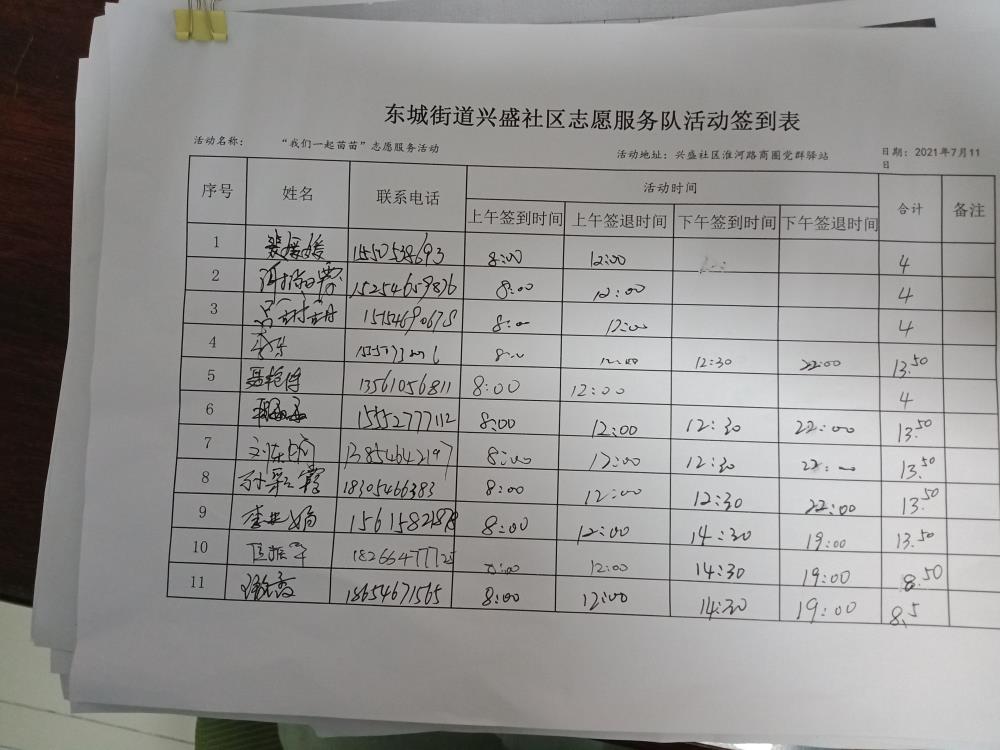 东城街道兴盛社区志愿服务队活动签到表
活动名称： “我们一起苗苗”志愿服务活动 活动地址：兴盛社区淮河路商圈党群驿站 日期：2021年7月11日
序号 姓名 联系电话 活动时间 合计 备注
上午签到时间 上午签退时间 下午签到时间 下午签退时间
1 8:00 12:00 4
2 15254659876 8:00 12:00 4
3 8:00 12:00 4
4 8:00 12:00 12:30 22:00 13.50
5 13561056811 8:00 12:00 4
6 15552777112 8:00 12:00 12:30 22:00 13.50
7 13854642197 8:00 12:00 12:30 22:00 13.50
8 孙彩霞 18305466383 8:00 12:00 12:30 22:00 13.50
9 8:00 12:00 14:30 19:00 13.50
10 18266477725 8:00 12:00 14:30 19:00 8.50
11 18654671565 8:00 12:00 14:30 19:00 8.5